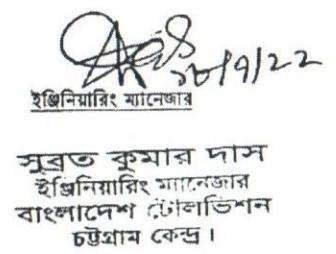 ১৮/৭/২২
ইঞ্জিনিয়ারিং ম্যানেজার
সুব্রত কুমার দাস
ইঞ্জিনিয়ারিং ম্যানেজার
বাংলাদেশ টেলিভিশন
চট্টগ্রাম কেন্দ্র।